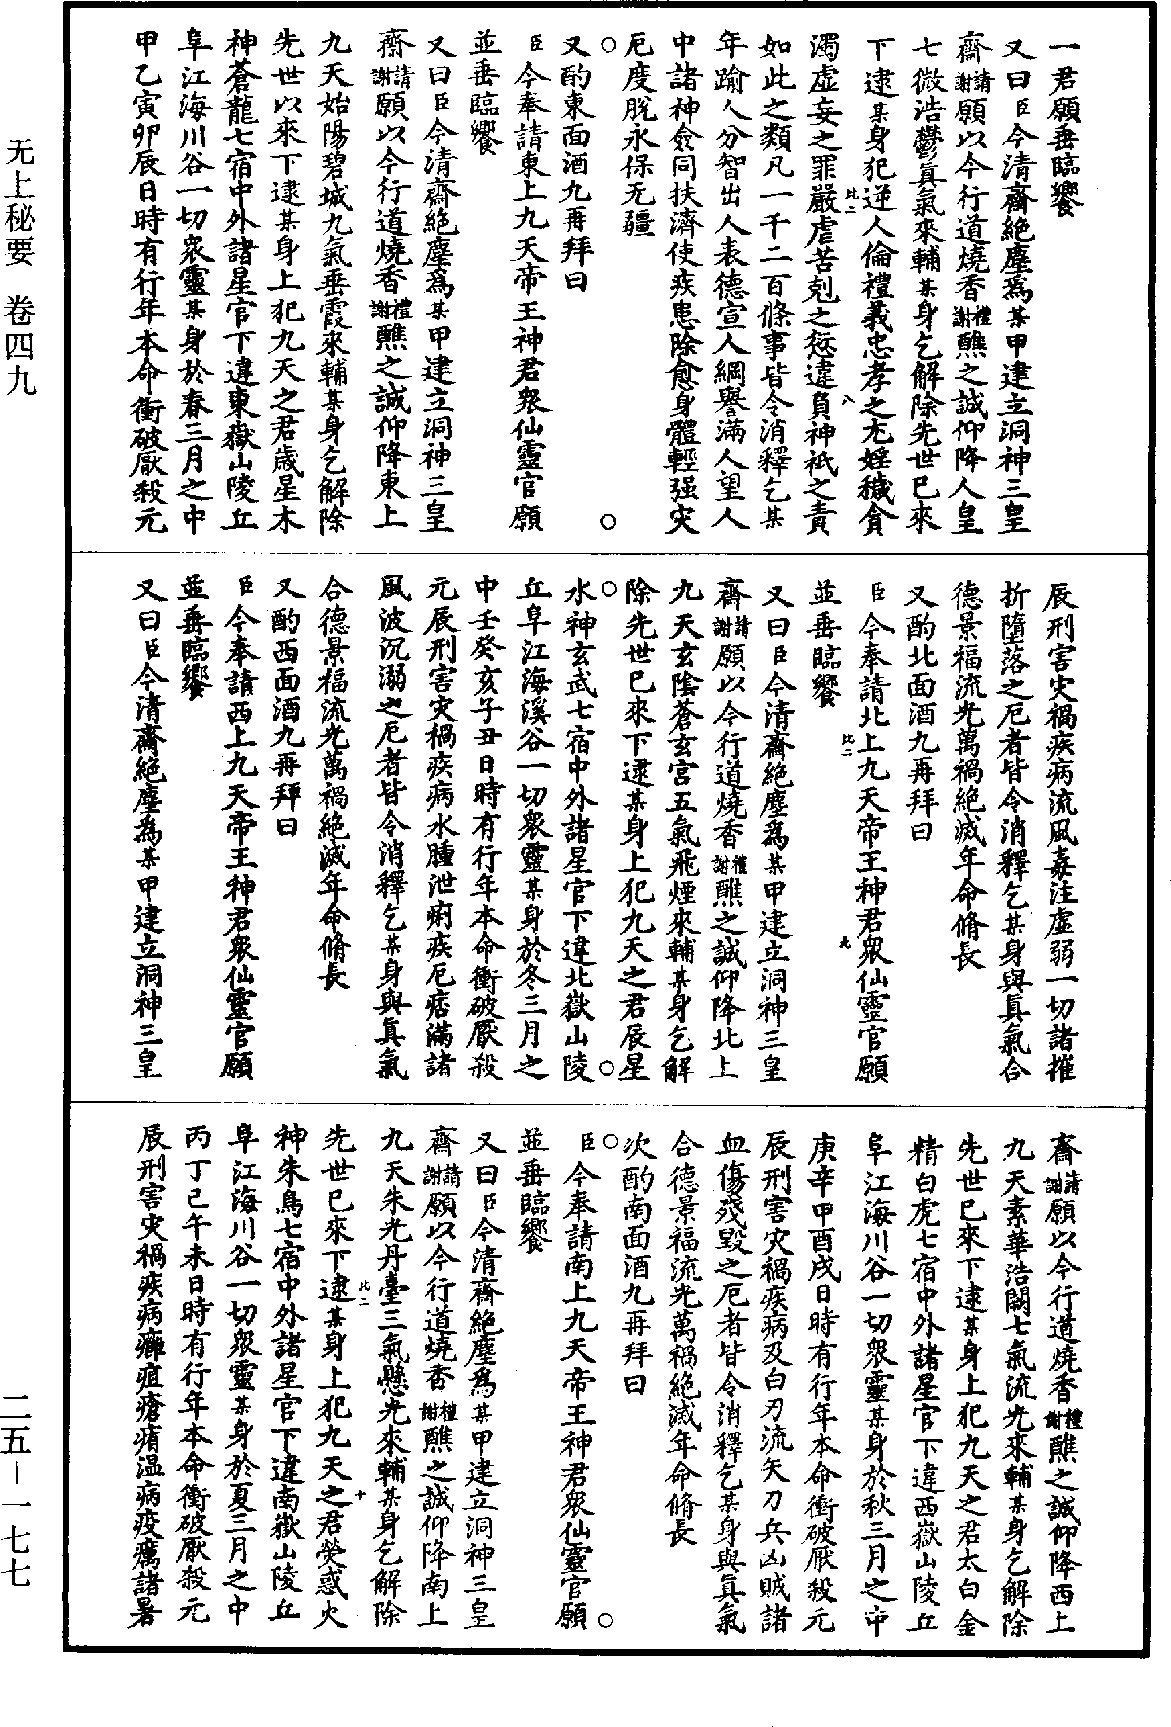 一君願垂臨饗
又曰臣今清齋絕塵爲某甲建立洞神三皇
齋請謝願以今行道燒香禮謝醮之誠仰降人皇
七微浩鬱真氣來輔某身乞解除先世已來
下逮某身犯逆人倫禮義忠孝之尤婬穢貪
濁虛妄之罪嚴虐苦剋之愆違負神祇之責
如此之類凡一千二百條事皆令消釋乞某
年踰人分智出人表德宣人綱譽滿人望人
中諸神僉同扶濟使疾患除愈身體輕强灾
厄度脫永保无疆
又酌東面酒九再拜曰
臣今奉請東上九天帝王神君衆仙靈官願
並垂臨饗
又曰臣今清齋絕塵爲某甲建立洞神三皇
齋請謝願以今行道燒香禮謝醮之誠仰降東上
九天始陽碧城九氣垂霞來輔某身乞解除
先世以來下逮某身上犯九天之君歲星木
神蒼龍七宿中外諸星官下違東嶽山陵丘
阜江海川谷一切衆靈某身於春三月之中
甲乙寅卯辰日時有行年本命衝破厭殺元
辰刑害灾禍疾病流風毒注虛弱一切諸摧
折墮落之厄者皆令消釋乞某身與真氣合
德景福流光萬禍絕滅年命脩長
又酌北面酒九再拜曰
臣今奉請北上九天帝王神君衆仙靈官願
並垂臨饗
又曰臣今清齋絕塵爲某甲建立洞神三皇
齋請謝願以今行道燒香禮謝醮之誠仰降北上
九天玄陰蒼玄宮五氣飛煙來輔某身乞解
除先世已來下逮某身上犯九天之君辰星
水神玄武七宿中外諸星官下違北嶽山陵
丘阜江海溪谷一切衆靈某身於冬三月之
中壬癸亥子丑日時有行年本命衝破厭殺
元辰刑害灾禍疾病水腫泄痢疾厄痞滿諸
風波沉溺之厄者皆令消釋乞某身與真氣
合德景福流光萬禍絕滅年命脩長
又酌西面酒九再拜曰
臣今奉請西上九天帝王神君衆仙靈官願
並垂臨饗
又曰臣今清齋絕塵爲某甲建立洞神三皇
齋請謝願以今行道燒香禮謝醮之誠仰降西上
九天素華浩闕七氣流光來輔某身乞解除
先世已來下逮某身上犯九天之君太白金
精白虎七宿中外諸星官下違西嶽山陵丘
阜江海川谷一切衆靈某身於秋三月之中
庚辛申酉戌日時有行年本命衝破厭殺元
辰刑害灾禍疾病及白刃流矢刀兵凶賊諸
血傷殘毀之厄者皆令消釋乞某身與真氣
合德景福流光萬禍絕滅年命脩長
次酌南面酒九再拜曰
臣今奉請南上九天帝王神君衆仙靈官願
並垂臨饗
又曰臣今清齋絕塵爲某甲建立洞神三皇
齋請謝願以今行道燒香禮謝醮之誠仰降南上
九天朱光丹臺三氣懸光來輔某身乞解除
先世已來下逮某身上犯九天之君熒惑火
神朱鳥七宿中外諸星官下違南嶽山陵丘
阜江海川谷一切衆靈某身於夏三月之中
丙丁巳午未日時有行年本命衝破厭殺元
辰刑害灾禍疾病癰疽瘡瘠温病疫癘諸暑
无上秘要 卷四九
二五－一七七